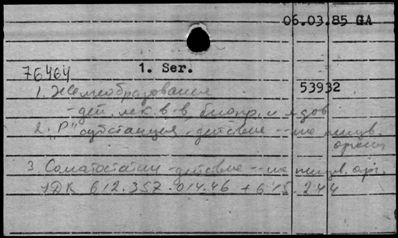 06.03.85 GA
76464
1. Ser.
1. Желчеобразование
53932
- дей. лек. в-в биопр. и ядов
2. "Р" субстанция - действие -- на пищев.
органы
3. Соматостатин - действие -- на пищев. орг.
УДК 612.357.014.46 + 615.244